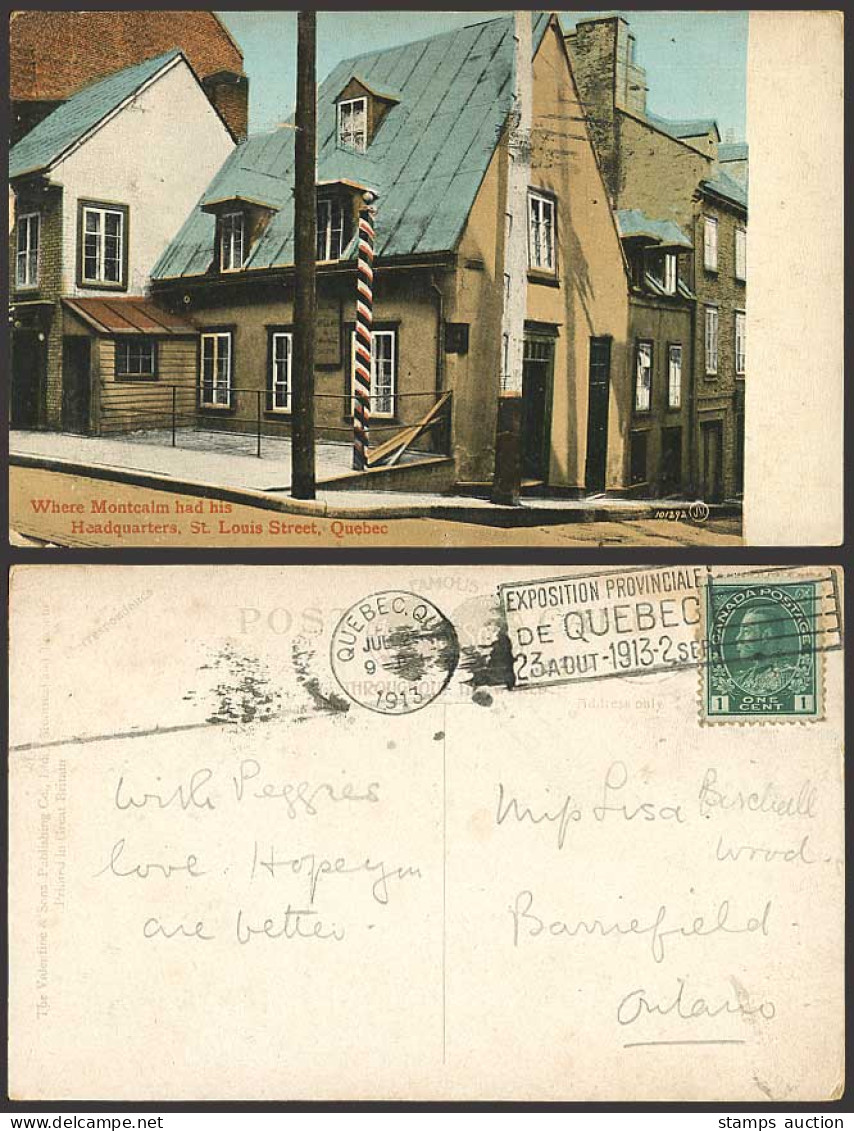 Where Montcalm had his
Headquarters, St. Louis Street, Quebec
101292 JV
Correspondence
The Valentine & Sons Publishing Co.,
Printed in Great Britain
FAMOUS
POST
THROUGHOUT THE
Address only
QUEBEC, QUE
JUL
9
1913
EXPOSITION PROVINCIALE
DE QUEBEC
23 AOUT - 1913 - 2 SEP
CANADA POSTAGE
1 ONE CENT 1
With Peggies
love. Hope you
are better.
Miss Lisa
Wood.
Barriefield.
Ontario
stamps auction